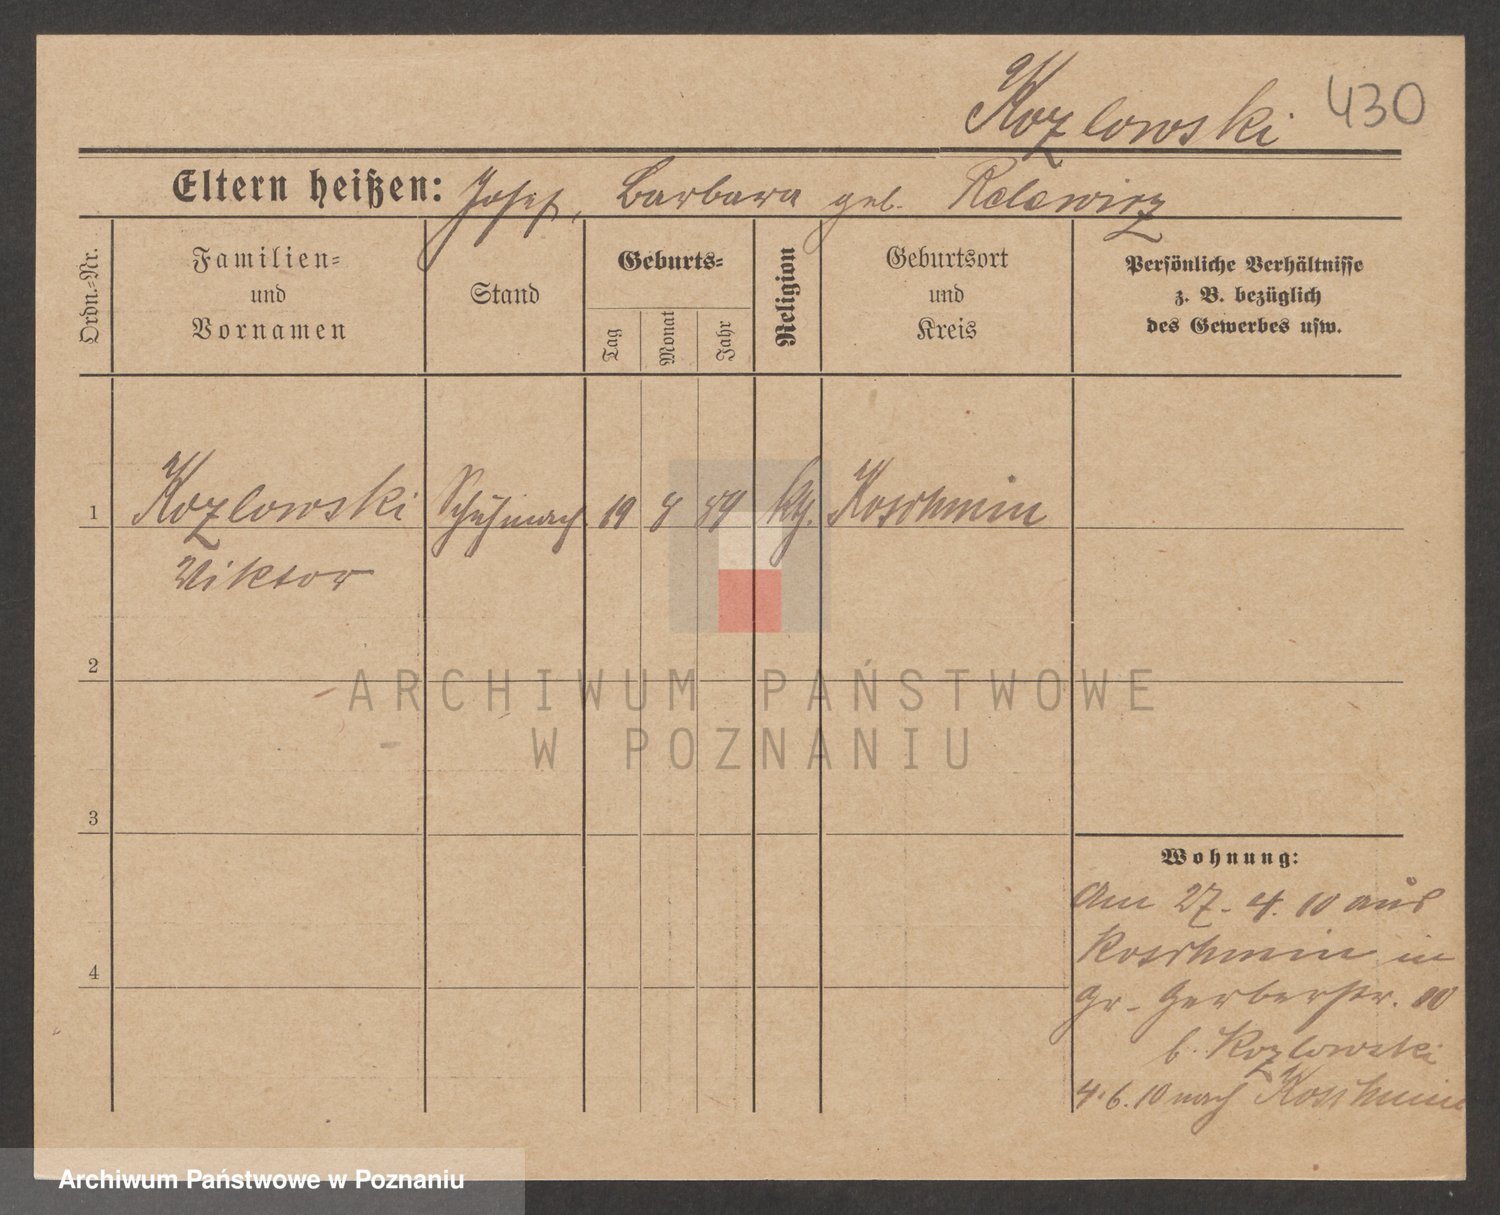 Kozlowski 430
Eltern heißen: Josef, Barbara geb.
Ordn.-Nr.
Familien-
und
Vornamen
Stand
Geburts-
Tag
Monat
Jahr
Religion
Geburtsort
und
Kreis
Persönliche Verhältnisse
z. B. bezüglich
des Gewerbes usw.
1 Kozlowski Schuhmach 19 8 89 kth. Koschmin
Viktor
2
3
4
Wohnung:
Am 27. 4. 10 aus
Koschmin in
Gr. Gerberstr. 10
b. Kozlowski
4.6.10 nach Koschmin
ARCHIWUM PAŃSTWOWE
W POZNANIU
Archiwum Państwowe w Poznaniu